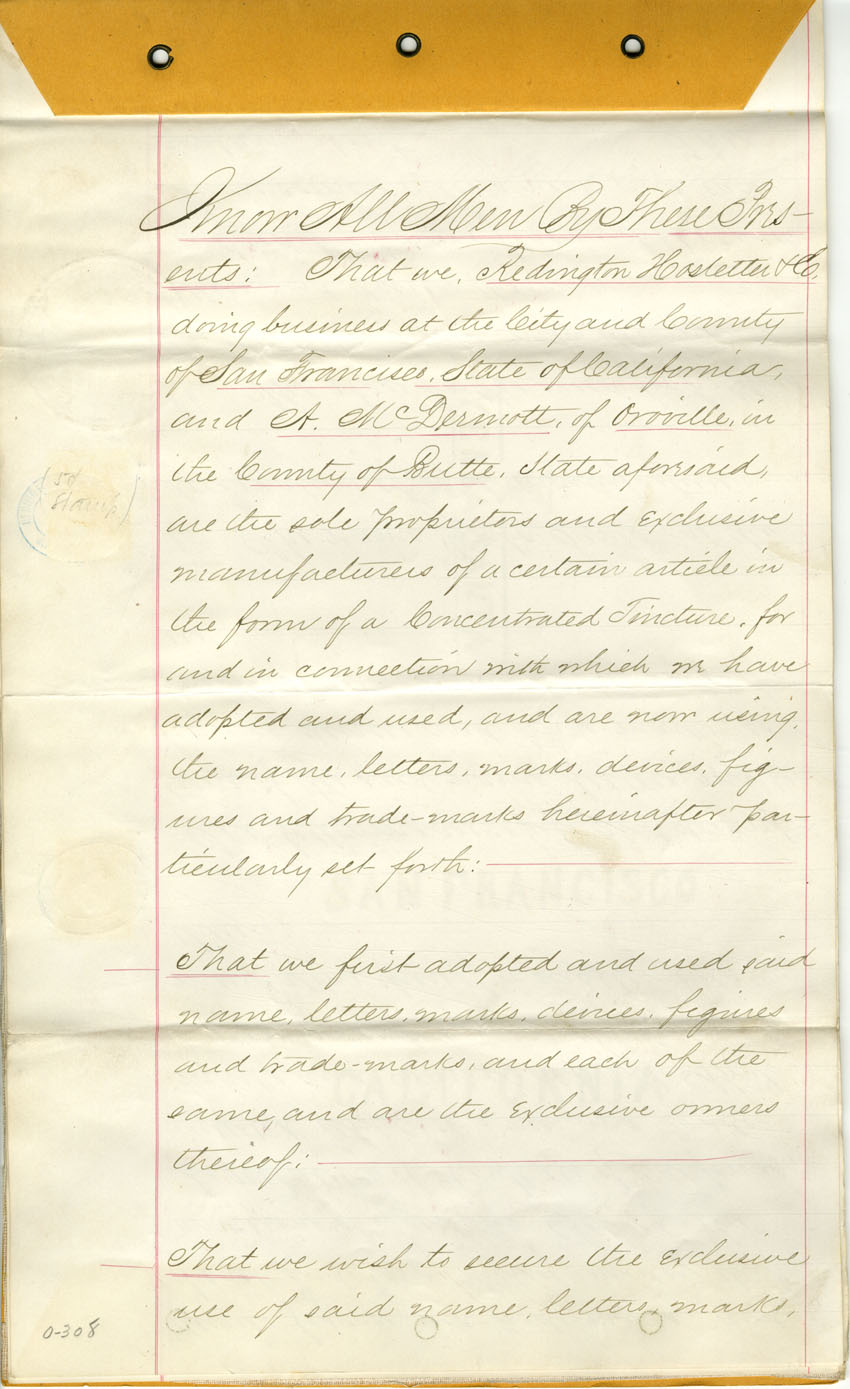 Know All Men By These Pres-
ents: That we, Redington Hostetter & Co.
doing business at the City and County
of San Francisco, State of California,
and A. McDermott, of Oroville, in
the County of Butte, State aforesaid,
are the sole proprietors and exclusive
manufacturers of a certain article in
the form of a Concentrated Tincture, for
and in connection with which we have
adopted and used, and are now using,
the name, letters, marks, devices, fig-
ures and trade-marks hereinafter par-
ticularly set forth:
(50
Stamp)
SAN FRANCISCO
That we first adopted and used said
name, letters, marks, devices, figures
and trade-marks, and each of the
same, and are the exclusive owners
thereof:
That we wish to secure the exclusive
use of said name, letters, marks,
0-308